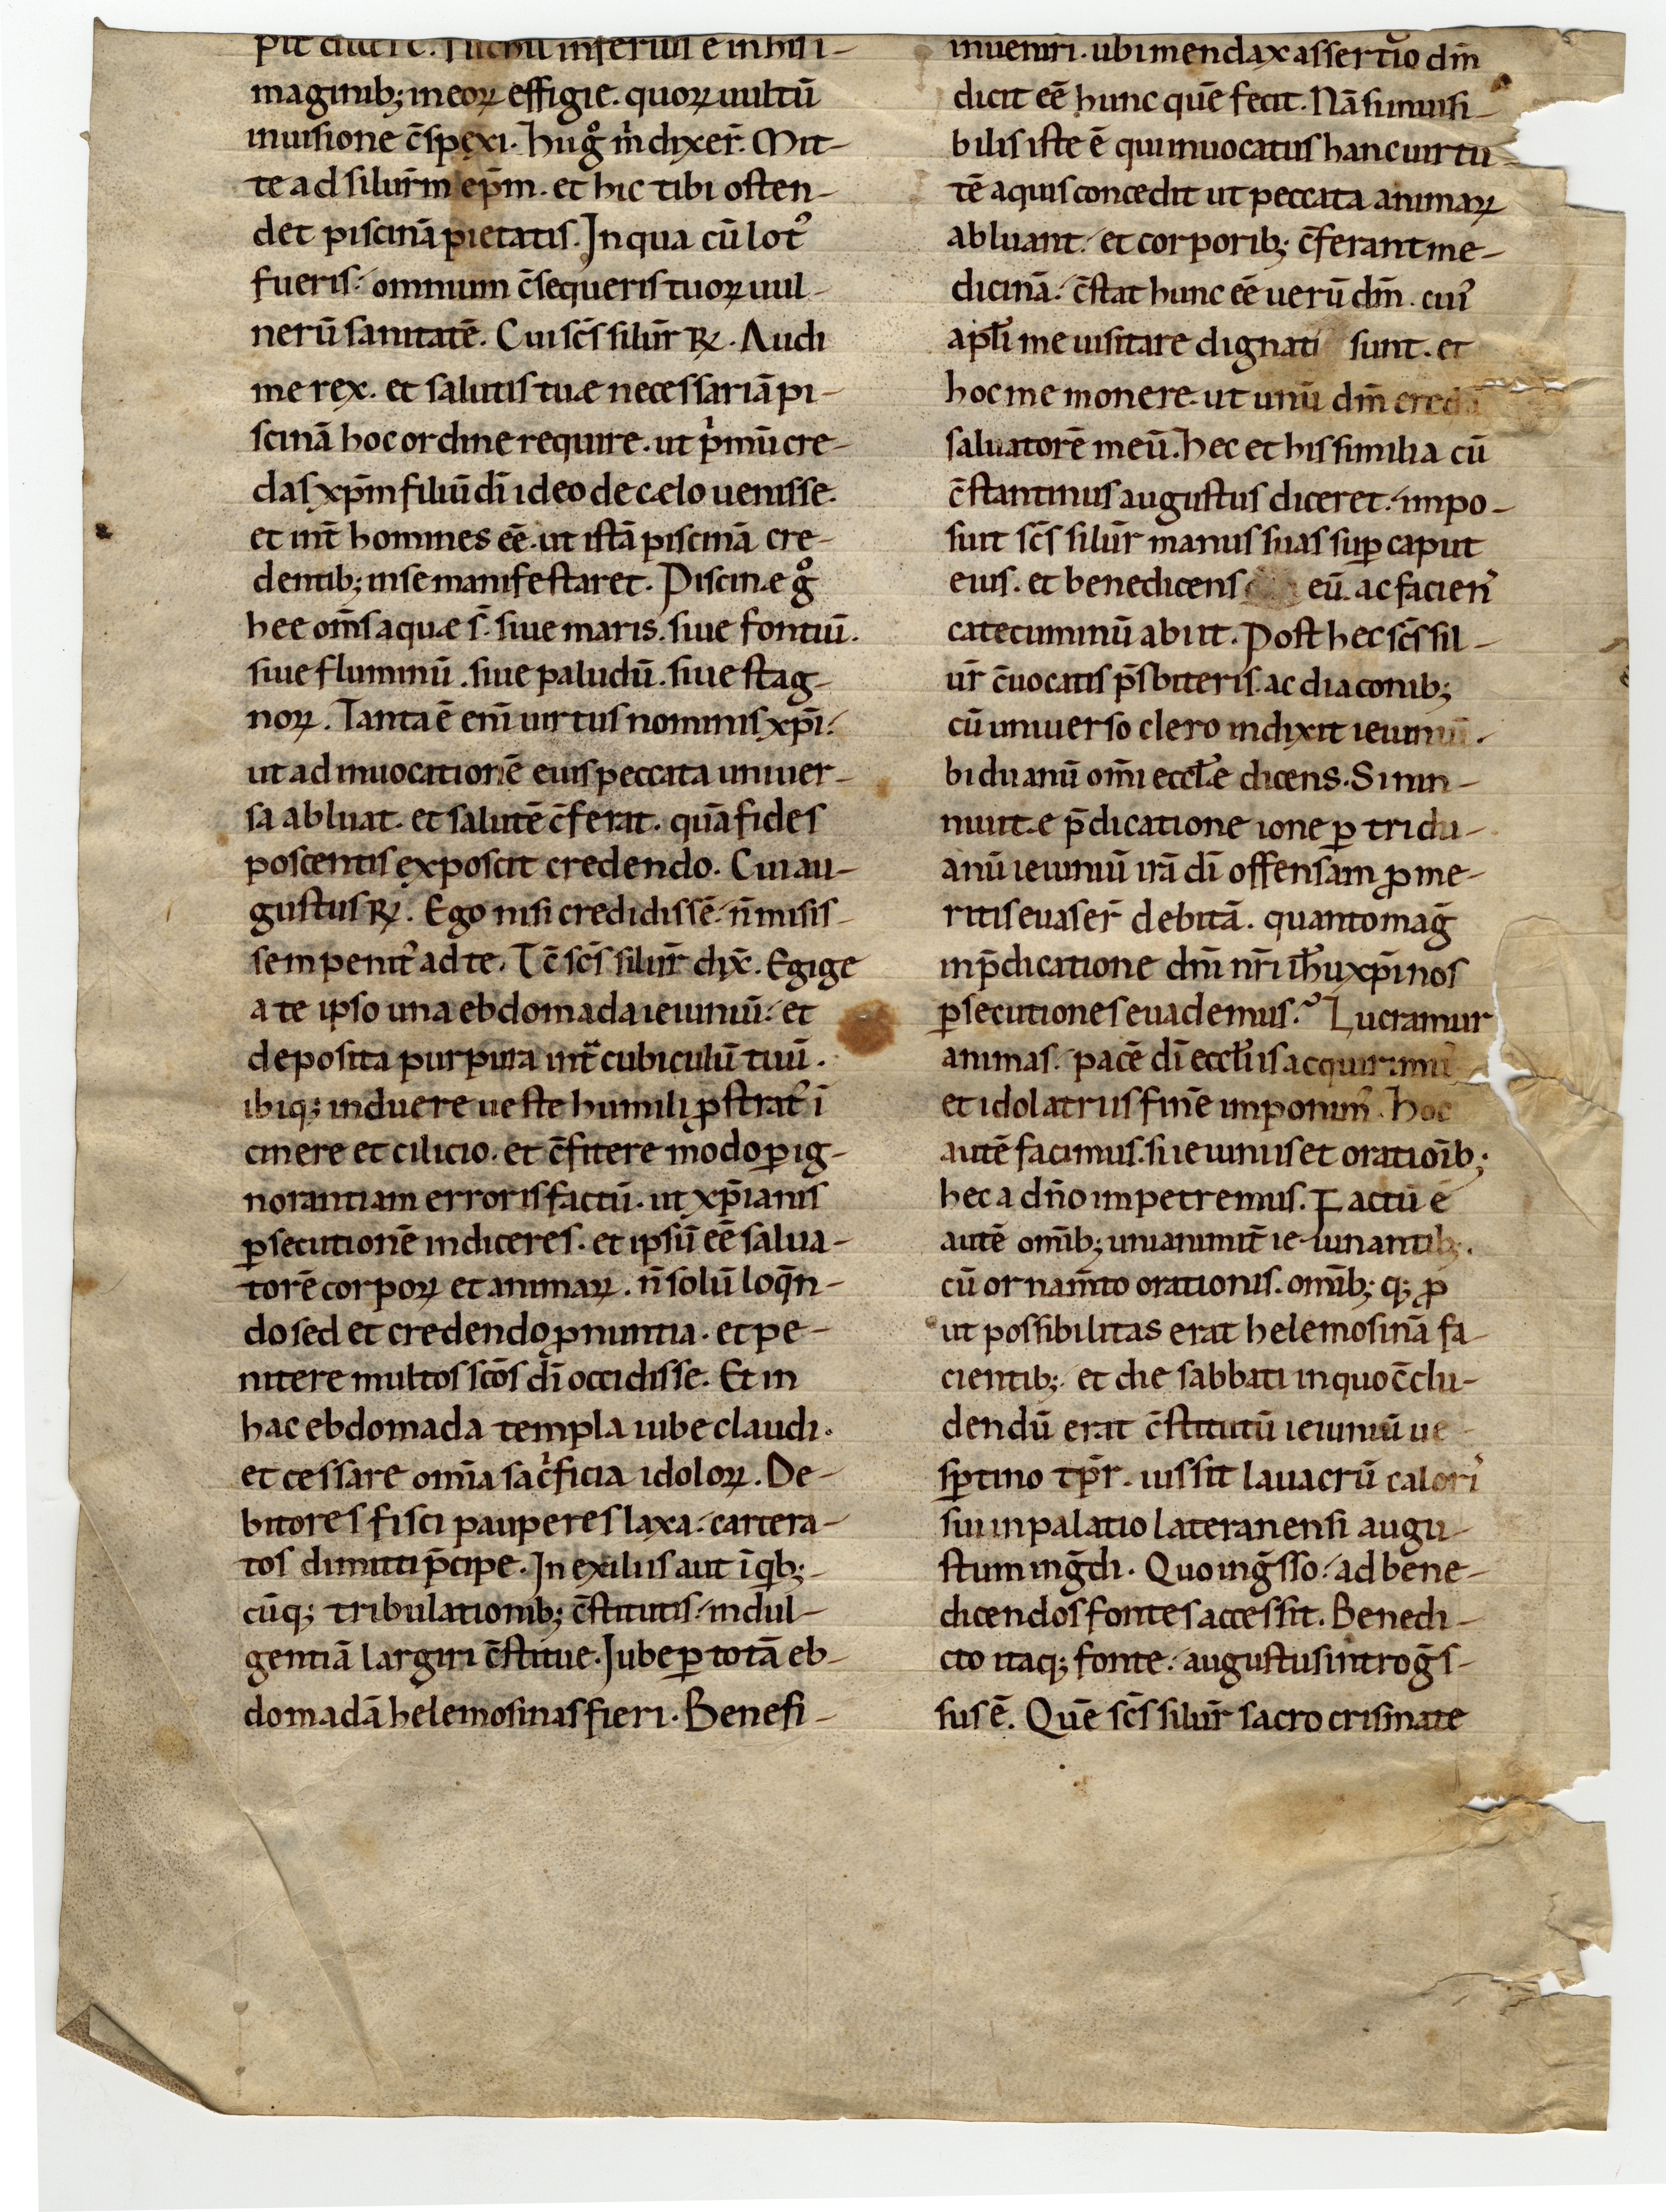 pit dicere. Nichil inferius e in his i-
maginib; ineoꝝ effigie. quoꝝ uultū
inuisione c̄spexi. hii gͦ m̄ dixer̄. Mit-
te ad silur̄m ep̄m. et hic tibi osten-
det piscinā pietatis. In qua cū lotꝰ
fueris. omnium c̄sequeris tuoꝝ uul-
nerū sanitatē. Cui sc̄s silur̄ ꝶ. Audi
me rex. et salutis tuæ necessariā pi-
scinā hoc ordine require. ut pͥmū cre-
das xp̄m filiū dī ideo de cælo uenisse.
et int̄ homines eē. ut istā piscinā cre-
dentib; inse manifestaret. Piscinæ gͦ
hee om̄s aquæ s̄. siue maris. siue fontiū.
siue fluminū. siue paludū. siue stag-
noꝝ. Tanta ē eni uirtus nominis xp̄i.
ut ad inuocationē eius peccata uniuer-
sa abluat. et salutē c̄ferat. quā fides
poscentis exposcit credendo. Cui au-
gustus ꝶ. Ego nisi credidissē. n̄ misis-
sem penitꝰ ad te. Tc̄ sc̄s silur̄ dix̄. Exige
a te ipso una ebdomada ieiuniū. et
deposita purpura int̄ cubiculū tuū.
ibiq; induere ueste humili ꝓstratꝰ ī
cinere et cilicio. et c̄fitere modo ꝑ ig-
norantiam erroris factū. ut xp̄ianis
ꝑsecutionē indiceres. et ipsū eē salua-
torē corpoꝝ et animaꝝ. n̄ solū loq̄n-
do sed et credendo ꝓnuntia. et pe-
nitere multos sc̄os dī occidisse. Et in
hac ebdomada templa iube claudi.
et cessare om̄ia sacͥficia idoloꝝ. De-
bitores fisci pauperes laxa. carcera-
tos dimitti p̄cipe. In exiliis aut īq̄b;-
cūq; tribulationib; c̄stitutis. indul-
gentiā largiri c̄stitue. Iube ꝑ totā eb-
domadā helemosinas fieri. Benefi-
inueniri. ubi mendax assertio dm̄
dicit eē hunc quē fecit. Nā sī inuisi-
bilis iste ē qui inuocatus hanc uirtu-
tē aquis concedit ut peccata animaꝝ
abluant. et corporib; c̄ferant me-
dicinā. c̄stat hunc eē uerū dm̄. cuiꝰ
apl̄i me uisitare dignati sunt. et
hoc me monere. ut unū dm̄ credā
saluatorē meū. hec et his similia cū
c̄stantinus augustus diceret. impo-
suit sc̄s silur̄ manus suas suꝑ caput
eius. et benedicens eū. ac facienˢ
catecuminū abiit. Post hec sc̄s sil-
ur̄ c̄uocatis p̄sbiteris. ac diaconib;
cū uniuerso clero indixit ieiuniū.
biduanū om̄i eccl̄æ dicens. Si nin-
niuitæ p̄dicatione ione ꝑ tridu-
anū ieiuniū irā dī offensam ꝓ me-
ritis euaser̄ debitā. quanto maḡ
inp̄dicatione dn̄i nr̄i ih̄u xp̄i nos
ꝑsecutiones euademus. Lucramur
animas. pacē dī eccl̄iis acquirimꝰ
et idolatriis finē imponimꝰ. Hoc
autē facimus. si ieiuniis et oratiōib;
hec a dn̄o impetremus. Factū ē
autē om̄ib; unianimit̄ ie-iunantib;.
cū ornam̄to orationis. om̄ib; q; ꝓ
ut possibilitas erat helemosinā fa-
cientib; et die sabbati in quo c̄clu-
dendū erat c̄stitutū ieiuniū ue-
sꝑtino tp̄r. iussit lauacrū calorꝰ
sui in palatio lateranensi augu-
stum inḡdi. Quo inḡsso. ad bene-
dicendos fontes accessit. Benedi-
cto itaq; fonte. augustus introḡs-
sus ē. Quē sc̄s silur̄ sacro crismate